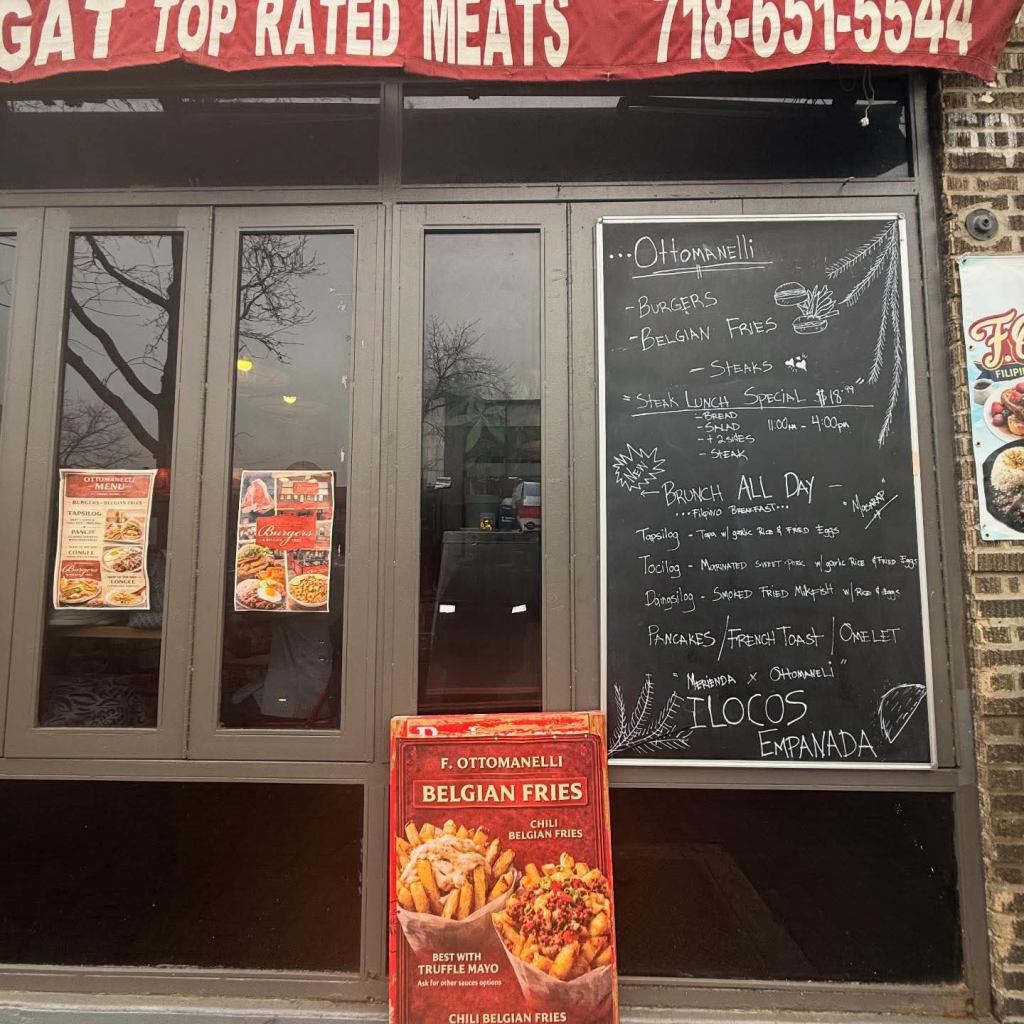 GAT TOP RATED MEATS 718-651-5544
...Ottomanelli
- BURGERS
- BELGIAN FRIES
- STEAKS
"STEAK LUNCH SPECIAL $18.99"
- BREAD
- SALAD
- + 2 SIDES
- STEAK
11:00am - 4:00pm
NEW
BRUNCH ALL DAY -
...Filipino BREAKFAST...
"MASARAP"
Tapsilog - Tapa w/ garlic Rice & FRIED Eggs
Tocilog - MARINATED SWEET PORK w/ garlic Rice & Fried Eggs
Daingsilog - SMOKED FRIED MilkFISH w/ Rice & Eggs
PANCAKES / FRENCH TOAST / OMELET
"MERIENDA x OTTOMANELI"
ILOCOS
EMPANADA
OTTOMANELLI
MENU
BURGERS & BELGIAN FRIES
TAPSILOG
PANCIT
CONGEE
Burgers
CONGEE
Burgers
FILIPI
F. OTTOMANELLI
BELGIAN FRIES
CHILI
BELGIAN FRIES
BEST WITH
TRUFFLE MAYO
Ask for other sauces options
CHILI BELGIAN FRIES